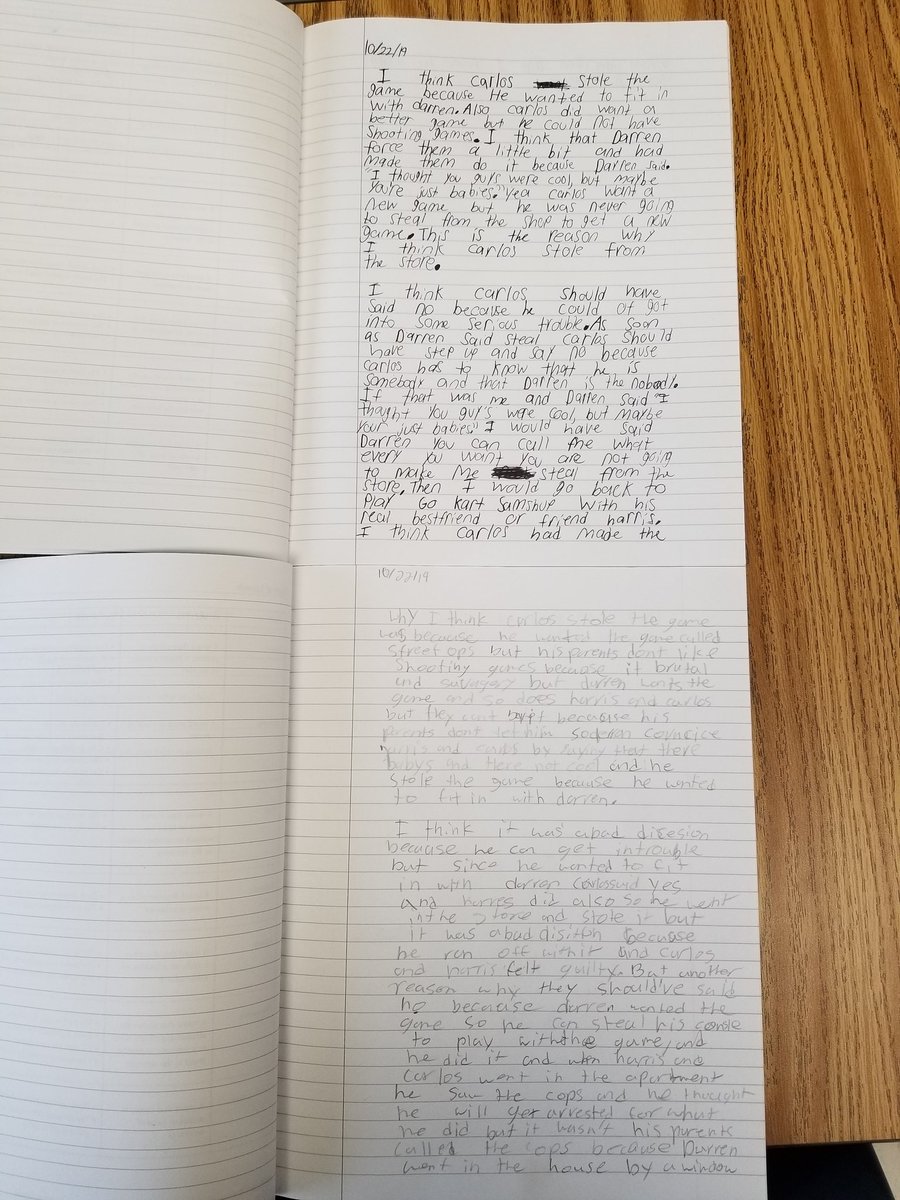 10/22/19
I think Carlos stole the
game because He wanted to fit in
with darren. Also carlos did want a
better game but he could not have
shooting games. I think that Darren
force them a little bit and had
made them do it because Darren said.
"I thought you guys were cool, but maybe
you're just babies." yea carlos want a
new game but he was never going
to steal from the shop to get a new
game. This is the reason why
I think Carlos stole from
the store.
I think carlos should have
said no because he could of got
into some serious trouble. As soon
as Darren said steal carlos should
have step up and say no because
carlos has to know that he is
somebody and that Darren is the nobody.
If that was me and Darren said "I
thought you guy's were cool, but maybe
your just babies." I would have said
Darren you can call me what
every you want you are not going
to make me steal from the
store. Then I would go back to
Play Go kart Samshup with his
real bestfriend or friend harris.
I think carlos had made the
10/22/19
Why I think carlos stole the game
was because he wanted the game called
street ops but his parents dont like
shooting games because it brutal
and savagery but darren wants the
game and so does harris and carlos
but they cant because his
parents dont let him so darren
harris and carlos by saying that there
babys and there not cool and he
stole the game because he wanted
to fit in with darren.
I think it was abad disesion
because he can get introuble
but since he wanted to fit
in with darren carlos said yes
and harres did also so he went
inthe store and stole it but
it was abad because
he ran off withit and carlos
and harris felt guilty. But another
reason why they should've said
no because darren wanted the
game so he can steal his
to play withthe game, and
he did it and when harris and
carlos went in the apartment
he saw the cops and he thought
he will get arrested for what
he did but it wasn't his parents
called the cops because Darren
went in the house by a window